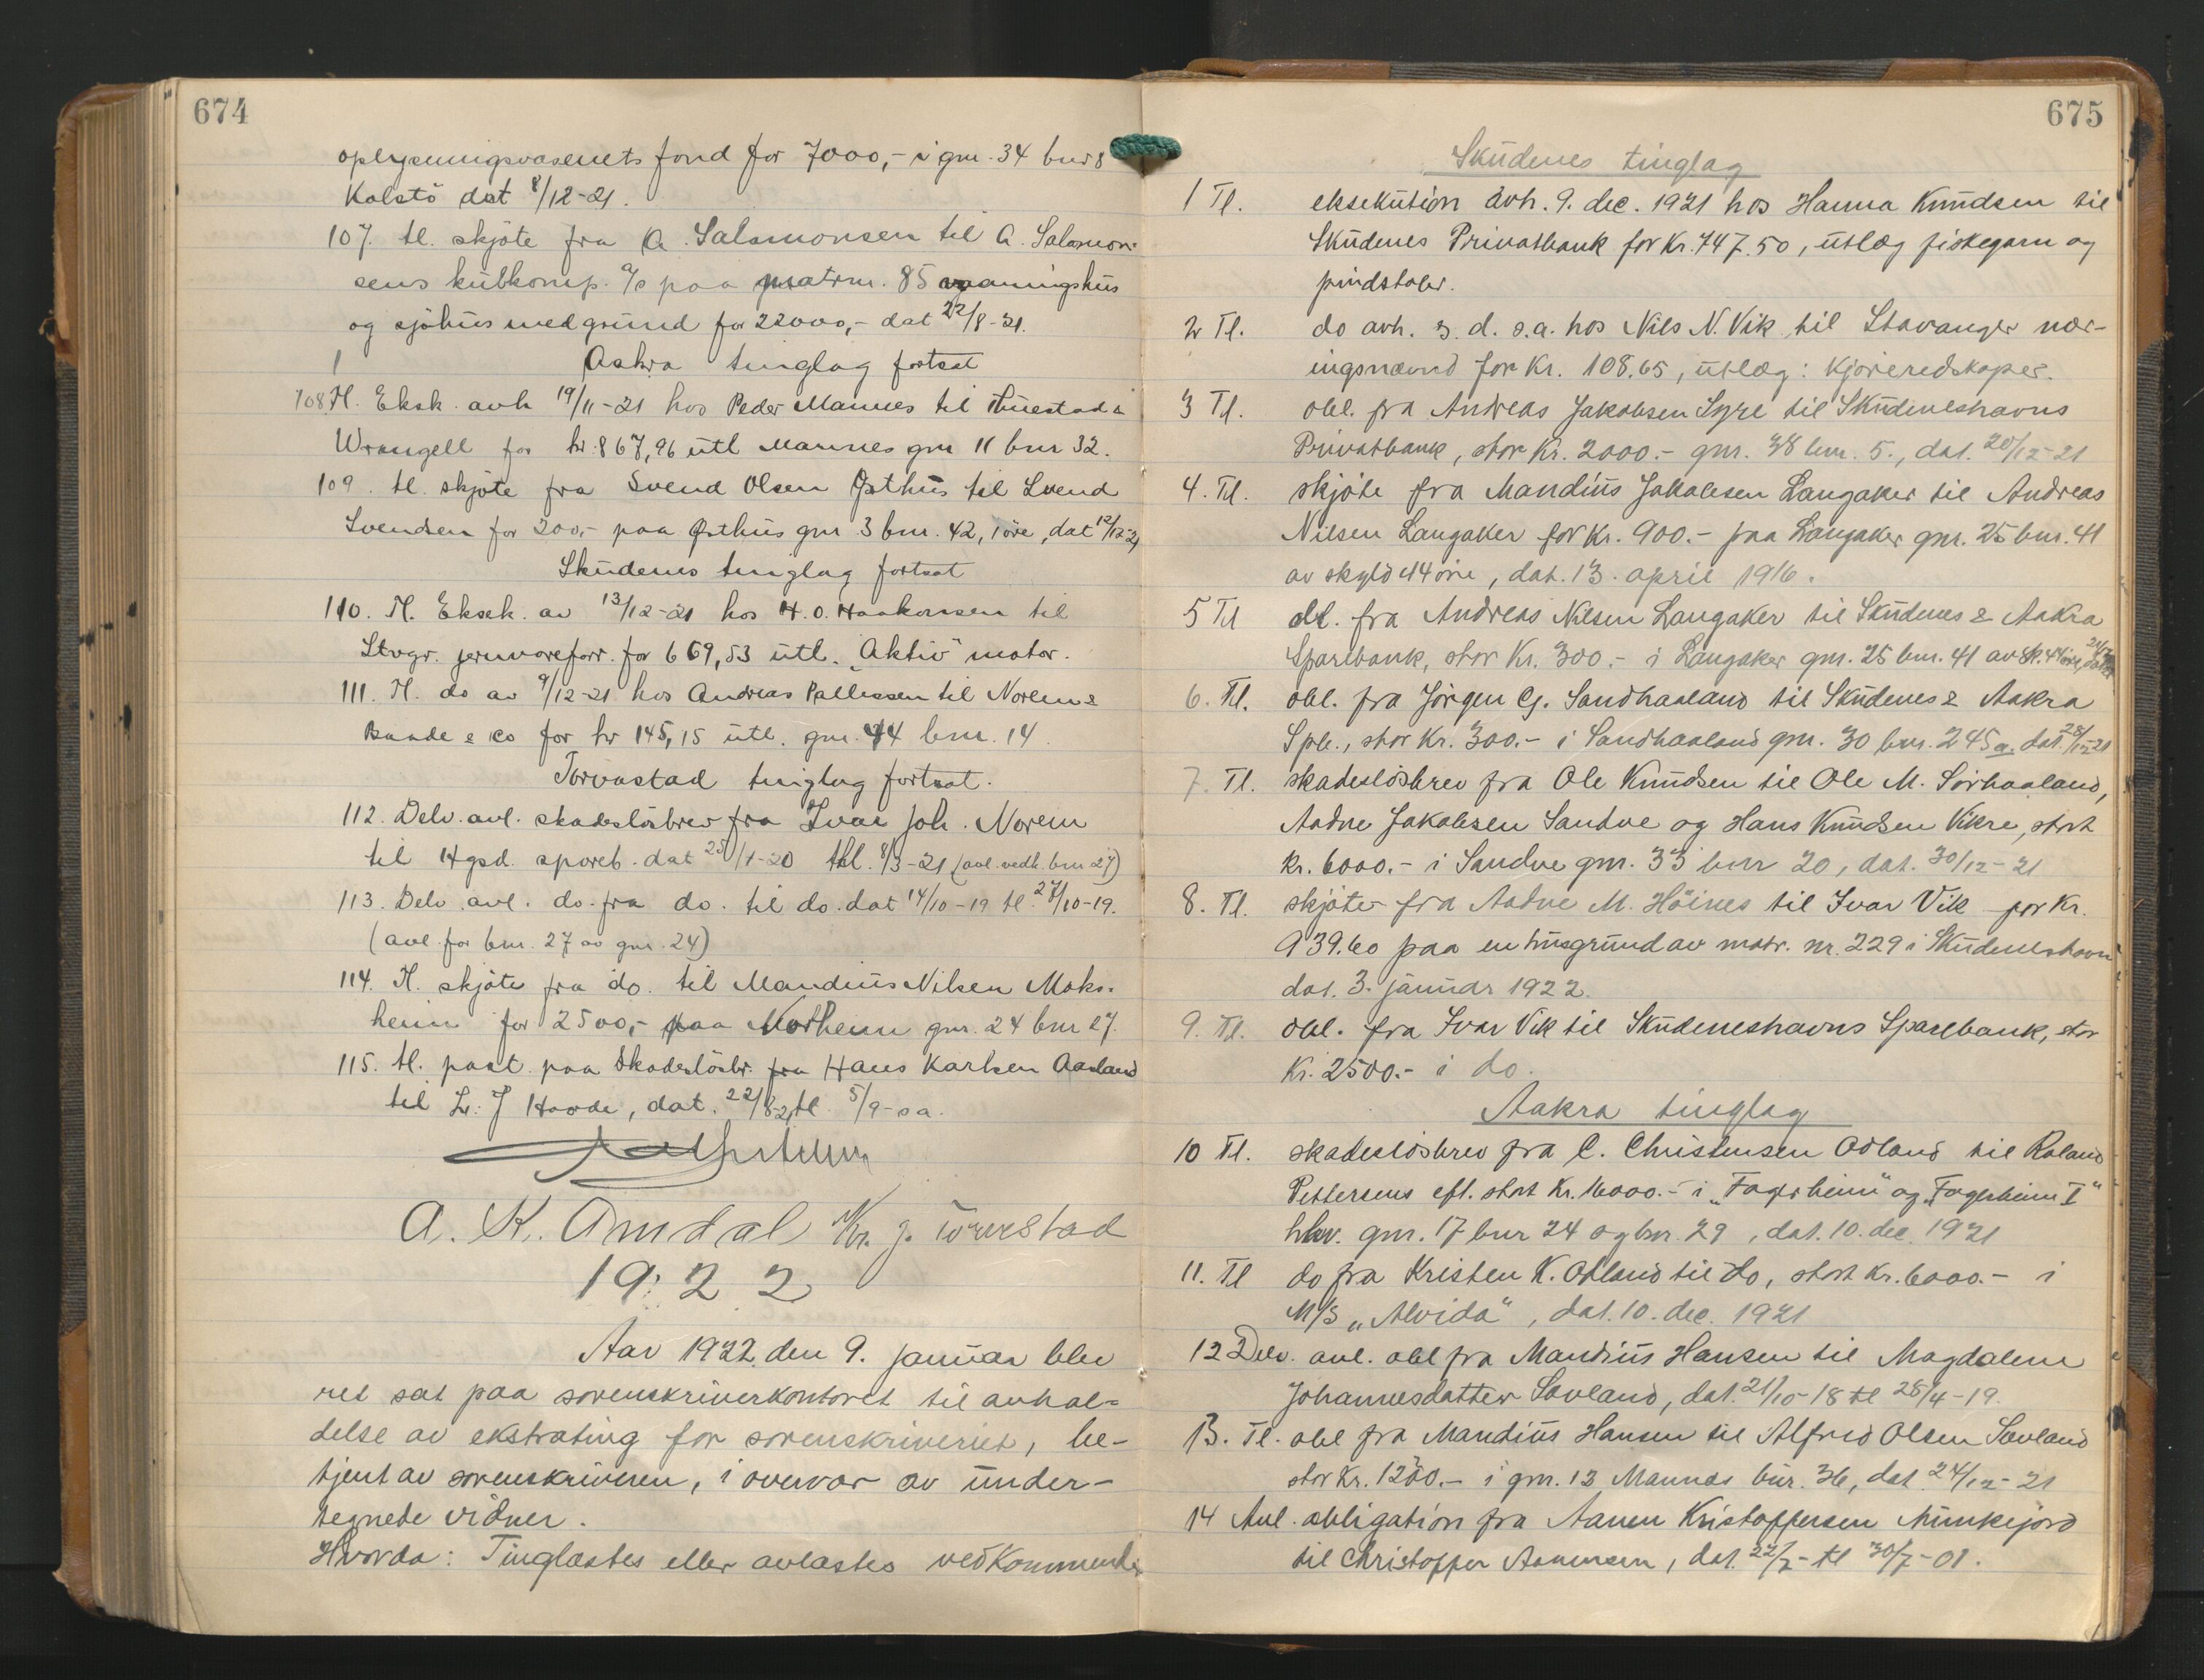 674
oplysningsvæsenets fond for 7000,- i gnr. 34 bnr 8
Kolstö dat 8/12-21.
107. tl. skjöte fra A. Salamonsen til A. Salamon-
sens kulkomp. A/S paa matrnr. 85 vaaningshus
og sjöhus med grund for 22000,- dat 22/8-21.
Aakra tinglag fortsat
108 Tl. Eksk. avh 19/11-21 hos Peder Mannes til Thuestad &
Wrangell for kr 867,96 utl Mannes gnr 11 bnr 32.
109. tl. skjöte fra Svend Olsen Østhus til Svend
Svendsen for 200,- paa Østhus gnr 3 bnr. 42, 1 öre, dat 12/12-21
Skudenes tinglag fortsat
110. Tl. Eksek. av 13/12-21 hos H. O. Haakonsen til
Stvgr. jernvareforr. for 669,53 utl. "Aktiv" motor.
111. Tl. do av 9/12-21 hos Andreas Pallessen til Norem &
Baade & co for kr 145,15 utl. gnr. 44 bnr. 14
Torvastad tinglag fortsat.
112. Delv. avl. skadeslösbrev fra Ivar Joh. Norem
til Hgsd. spareb. dat 25/1-20 tl. 8/3-21 (avl. vedk. bnr 27)
113. Delv. avl. do. fra do. til do. dat 14/10-19 tl. 27/10-19.
(avl. for bnr. 27 av gnr. 24)
114. Tl. skjöte fra do. til Mandius Nilsen Moks-
heim for 2500,- paa Norheim gnr. 24 bnr 27.
115. tl. paat. paa Skadeslösbr. fra Hans Karlsen Aasland
til L. J. Haarde, dat. 22/8-21 tl. 5/9-s a.
A. K. Amdal Kr. J. Törrestad
1922
Aar 1922 den 9. januar blev
ret sat paa sorenskriverkontoret til avhol-
delse av ekstrating for sorenskriveriet, be-
tjent av sorenskriveren, i overvær av under-
tegnede vidner.
Hvorda: Tinglæstes eller avlæstes vedkommende
675
Skudenes tinglag
1 Tl. eksekution avh. 9. dec. 1921 hos Hanna Knudsen til
Skudenes Privatbank for Kr. 747.50, utlæg fiskegarn og
pindstoler.
2 Tl. do avh. s. d. s.a. hos Nils N. Vik til Stavanger nær-
ingsnævnd for Kr. 108.65, utlæg: Kjöreredskaper.
3 Tl. obl. fra Andreas Jakobsen Syre til Skudeneshavns
Privatbank, stor Kr. 2000.- gnr. 38 bnr. 5., dat. 20/12-21
4. Tl. skjöte fra Mandius Jakobsen Langaker til Andreas
Nilsen Langaker for Kr. 900.- paa Langaker gnr. 25 bnr. 41
av skyld 44 öre, dat. 13. april 1916.
5 Tl obl. fra Andreas Nilsen Langaker til Skudenes & Aakra
Sparebank, stor Kr. 300.- i Langaker gnr. 25 bnr. 41 av sk. 44 öre,
6. Tl. obl. fra Jörgen Cg. Sandhaaland til Skudenes & Aakra
Spb., stor Kr. 300.- i Sandhaaland gnr. 30 bnr. 245 a. dat. 28/12-21
7. Tl. skadeslösbrev fra Ole Knudsen til Ole M. Sörhaaland,
Aadne Jakobsen Sandve og Hans Knudsen Vikre, stort
Kr. 6000.- i Sandve gnr. 33 bnr 20, dat. 30/12-21
8. Tl. skjöte fra Aadne M. Höines til Ivar Vik for Kr.
939.60 paa en husgrund av matr. nr. 229 i Skudeneshavn
dat. 3. januar 1922.
9. Tl. obl. fra Ivar Vik til Skudeneshavns Sparebank, stor
Kr. 2500.- i do.
Aakra tinglag
10 Tl. skadeslösbrev fra C. Christensen Ådland til Roland
Pettersens eft. stort Kr. 16000.- i "Fagerheim" og "Fagerheim I"
hhv. gnr. 17 bnr 24 og bnr. 29, dat. 10. dec. 1921
11. Tl do fra Kristen K. Ådland til do, stort Kr. 6000.- i
M/S "Alvida", dat. 10. dec. 1921
12 Delv. avl. obl fra Mandius Hansen til Magdalene
Johannesdatter Sævland, dat. 21/10-18 tl 28/4-19.
13. Tl. obl fra Mandius Hansen til Alfred Olsen Sævland
stor Kr. 1200.- i gnr. 12 Mannes bnr. 36, dat. 24/12-21
14 Avl. obligation fra Aanen Kristoffersen Munkejord
til Christoffer Aanensen, dat. 22/7- tl 30/7-01.